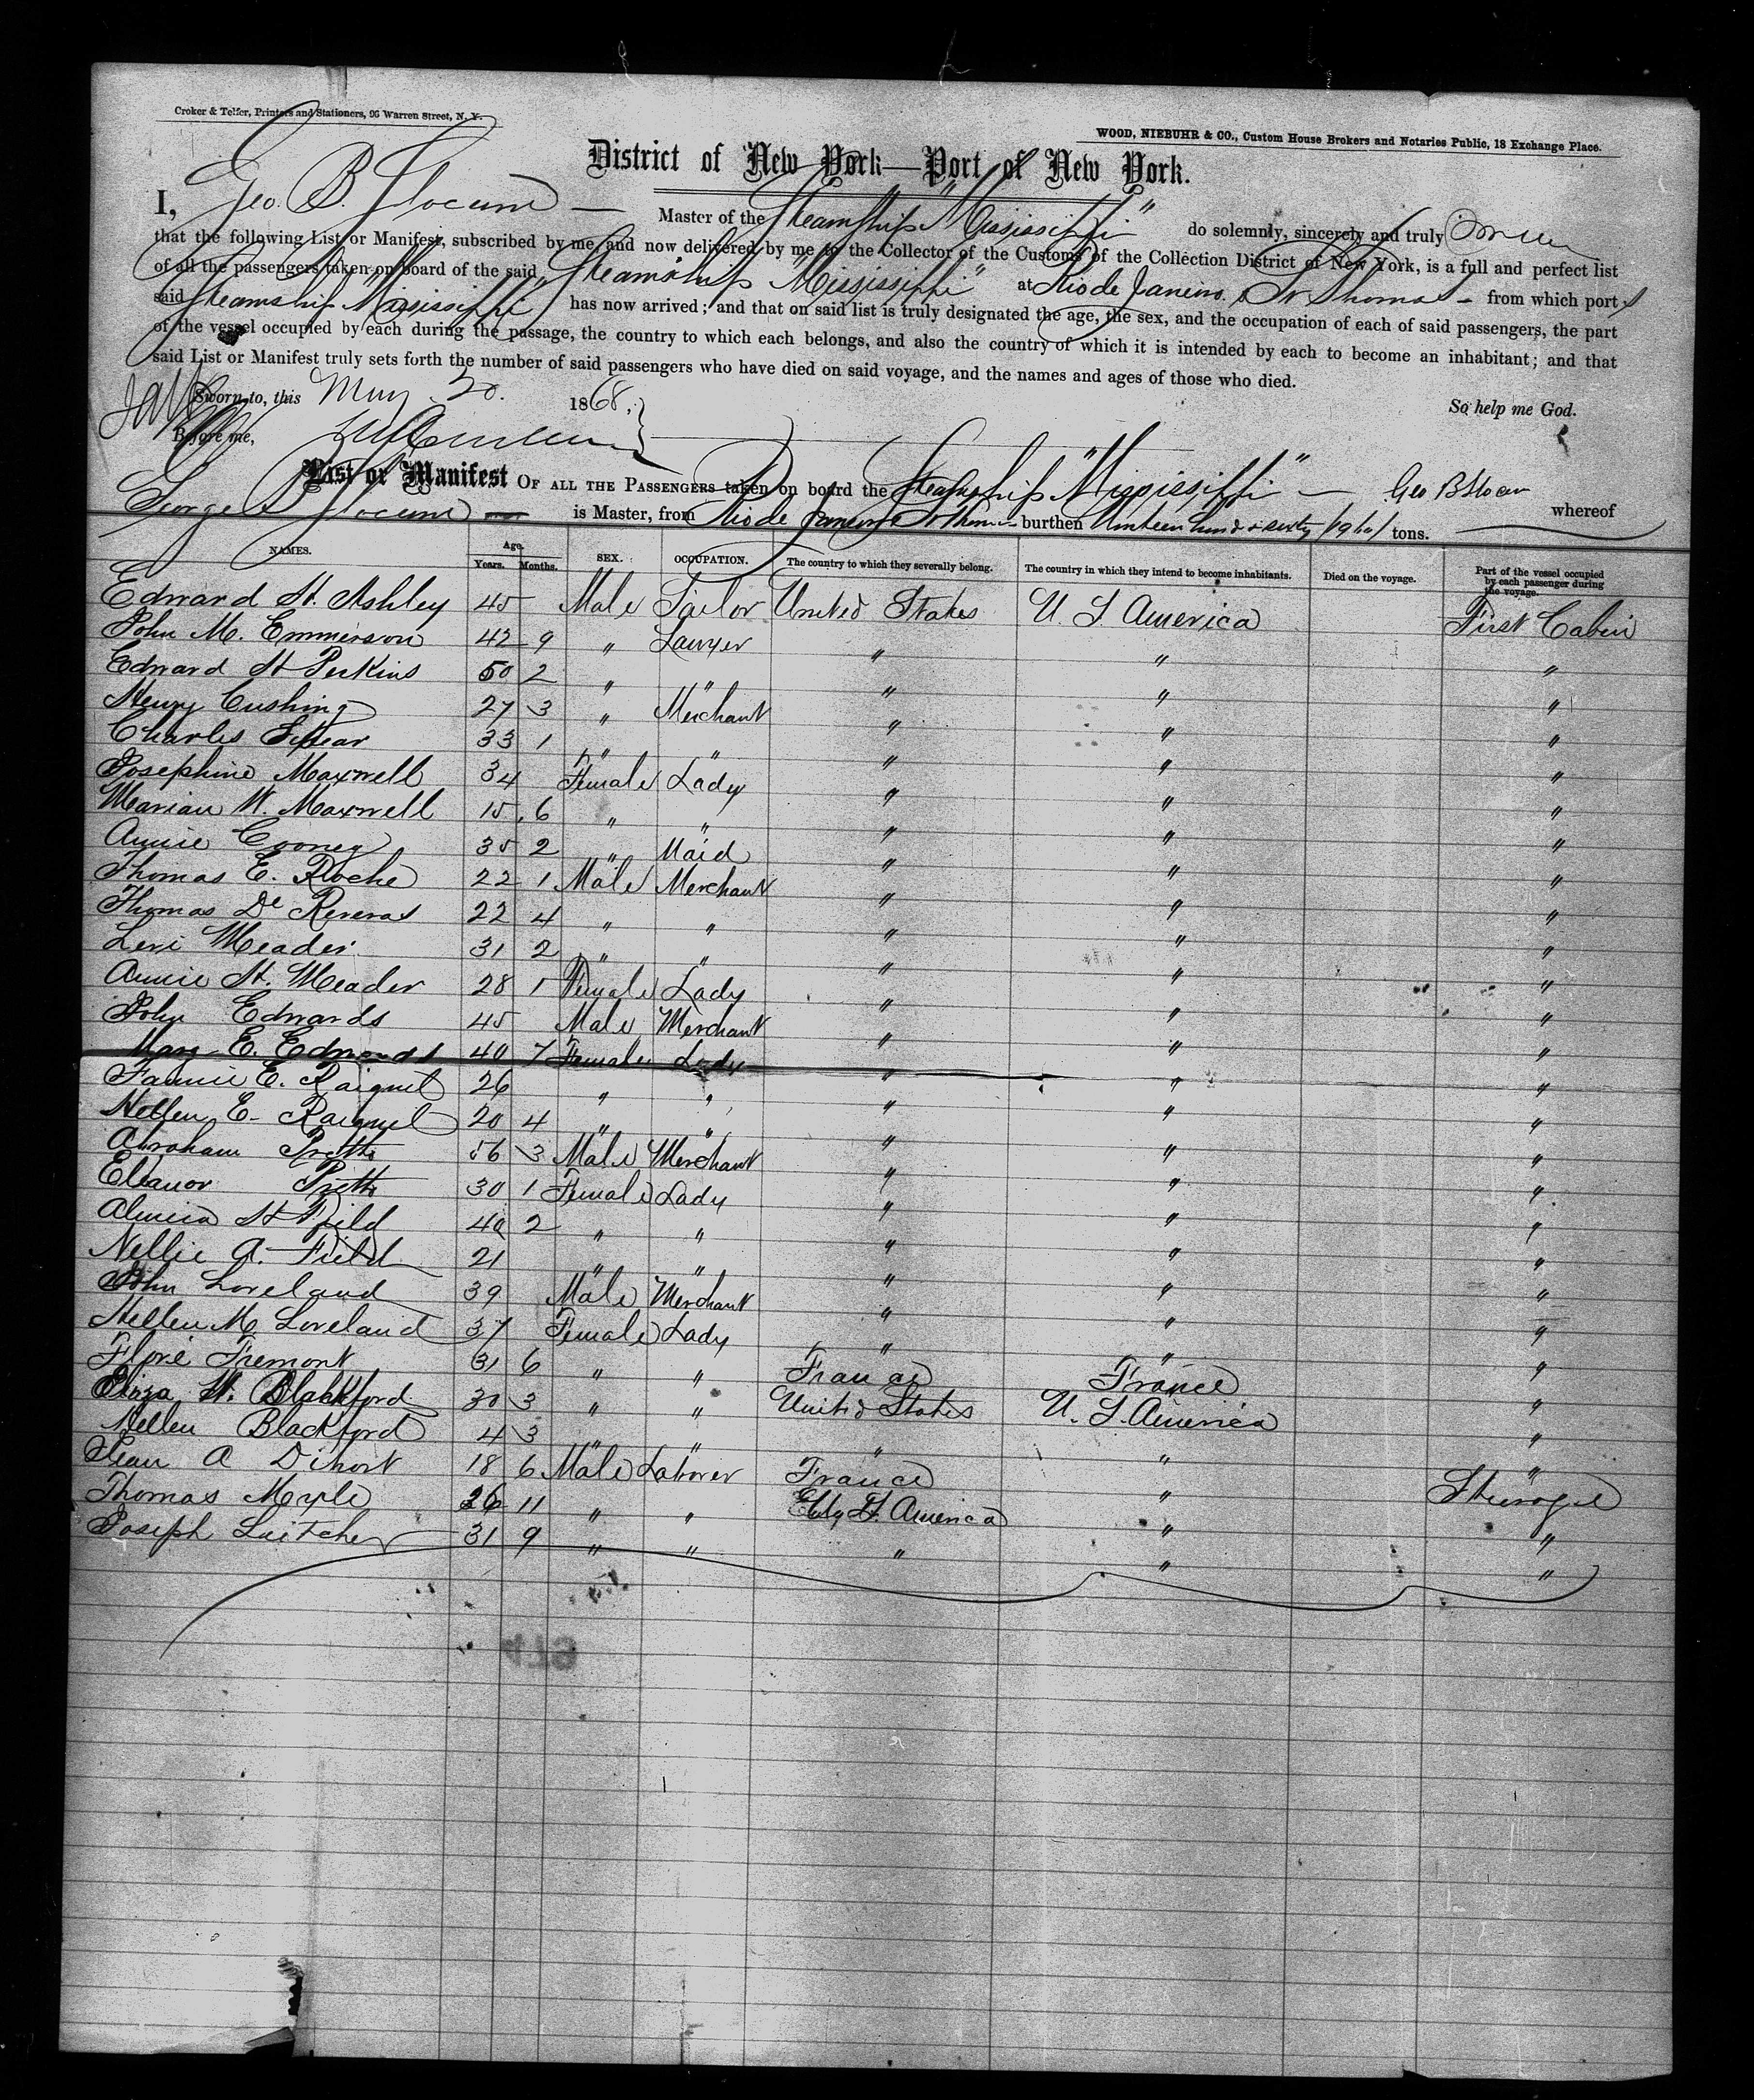 Croker & Telfer, Printers and Stationers, 96 Warren Street, N. Y.
WOOD, NIEBUHR & CO., Custom House Brokers and Notaries Public, 18 Exchange Place.
District of New York—Port of New York.
I, Geo. B. Slocum — Master of the Steamship "Mississippi" do solemnly, sincerely and truly swear
that the following List or Manifest, subscribed by me, and now delivered by me to the Collector of the Customs of the Collection District of New York, is a full and perfect list
of all the passengers taken on board of the said Steamship "Mississippi" at Rio de Janeiro & St Thomas – from which ports
said Steamship "Mississippi" has now arrived; and that on said list is truly designated the age, the sex, and the occupation of each of said passengers, the part
of the vessel occupied by each during the passage, the country to which each belongs, and also the country of which it is intended by each to become an inhabitant; and that
said List or Manifest truly sets forth the number of said passengers who have died on said voyage, and the names and ages of those who died.
Sworn to, this May 20. 1868. So help me God.
Before me,
List or Manifest OF ALL THE PASSENGERS taken on board the Steamship "Mississippi" — Geo B Slocum whereof
George B Slocum — is Master, from Rio de Janeiro & St Thomas burthen Nineteen hund & sixty /1960/ tons.
NAMES. Age. Years. Months. SEX. OCCUPATION. The country to which they severally belong. The country in which they intend to become inhabitants. Died on the voyage. Part of the vessel occupied by each passenger during the voyage.
Edward H. Ashley 45 Male Sailor United States U. S America First Cabin
John M. Emmerson 42 9 " Lawyer " " "
Edward H Perkins 50 2 " " " " "
Henry Cushing 27 3 " Merchant " " "
Charles 33 1 " " " " "
Josephine Maxwell 34 Female Lady " " "
Marian W. Maxwell 15 6 " " " " "
Annie Cooney 35 2 " Maid " " "
Thomas E. Roche 22 1 Male Merchant " " "
Thomas De Reveras 22 4 " " " " "
Levi Meader 31 2 " " " " "
Annie H. Meader 28 1 Female Lady " " "
John Edwards 45 Male Merchant " " "
Mary E. Edwards 40 7 Female Lady " " "
Fannie E. Raiguel 26 " " " " "
Hellen E. Raiguel 20 4 " " " " "
Abraham 56 3 Male Merchant " " "
Eleanor 30 1 Female Lady " " "
Almira H Field 40 2 " " " " "
Nellie A. Field 21 " " " " "
John Loveland 39 Male Merchant " " "
Hellen M. Loveland 37 Female Lady " " "
Florie Fremont 31 6 " " France France "
Eliza W. Blackford 30 3 " " United States U. S. America "
Hellen Blackford 4 3 " " " " "
Jean A 18 6 Male Laborer France " Steerage
Thomas 26 11 " " America " "
Joseph Luitcher 31 9 " " " " "